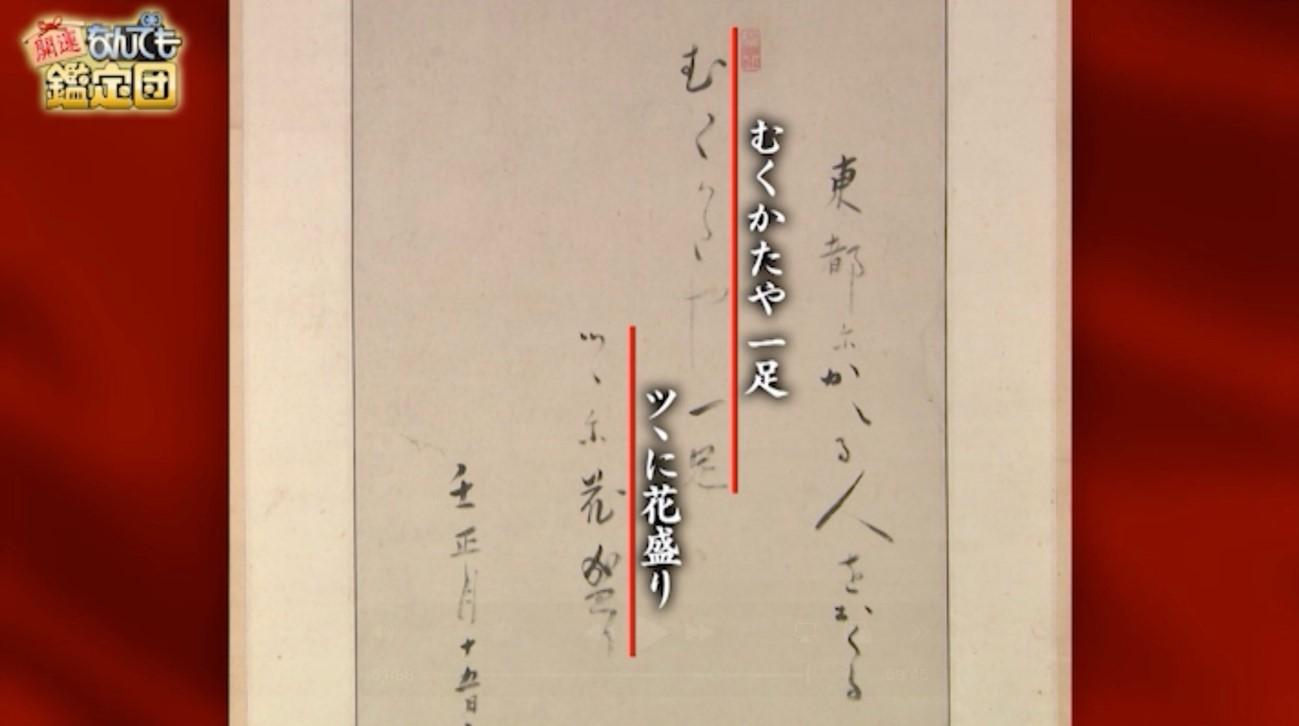 開運なんでも
鑑定団
東都尓かゝる人をおくる
むくかたや一足
むくかたや 一足
ツゝ尓花盛り
ツヽに花盛り
壬正月十五日